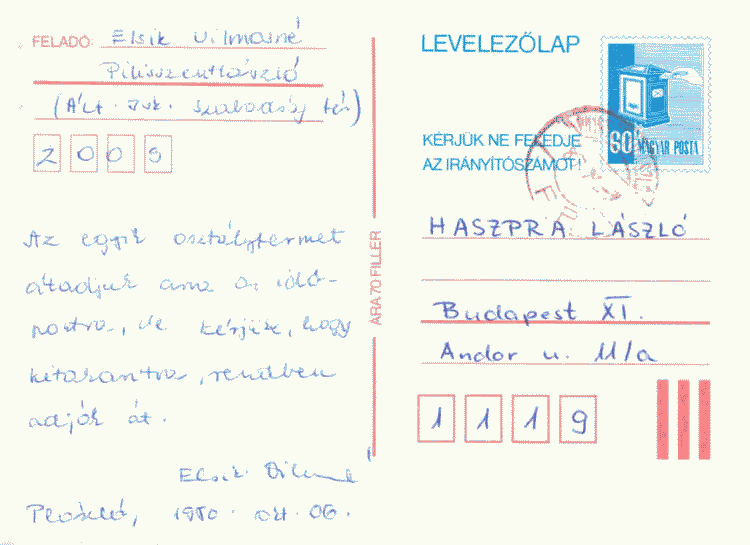 FELADÓ: Elsik Vilmosné
Pilisszentlászló
(Ált. Isk. Szabadság tér)
2009
Az egyik osztálytermet
átadjuk arra az idő-
pontra, de kérjük, hogy
kitakarítva, rendben
adják át.
Elsik Vilmosné
1980. okt. 06.
ÁRA 70 FILLÉR
LEVELEZŐLAP
KÉRJÜK NE FELEDJE
AZ IRÁNYÍTÓSZÁMOT!
60 MAGYAR POSTA
HASZPRA LÁSZLÓ
Budapest XI.
Andor u. 11/a
1119